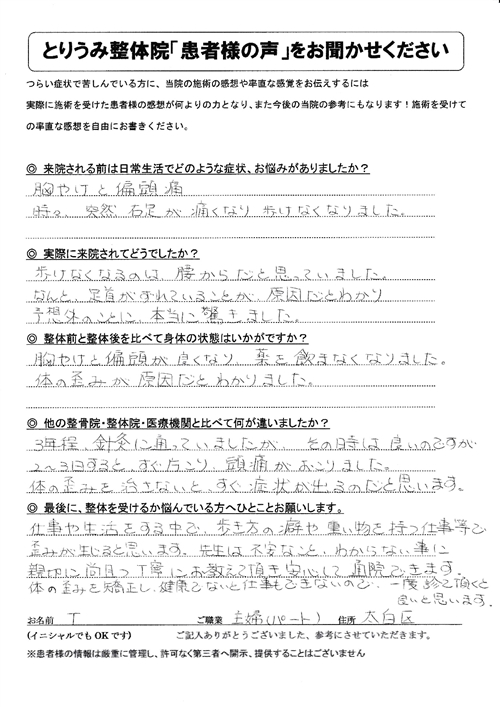 とりうみ整体院「患者様の声」をお聞かせください
つらい症状で苦しんでいる方に、当院の施術の感想や率直な感覚をお伝えするには
実際に施術を受けた患者様の感想が何よりの力となり、また今後の当院の参考にもなります！施術を受けて
の率直な感想を自由にお書きください。
◎ 来院される前は日常生活でどのような症状、お悩みがありましたか？
胸やけと偏頭痛
時々 突然 右足が 痛くなり 歩けなくなりました。
◎ 実際に来院されてどうでしたか？
歩けなくなるのは、腰からだと思っていました。
なんと、足首がずれていることが、原因だとわかり
予想外のことに、本当に驚きました。
◎ 整体前と整体後を比べて身体の状態はいかがですか？
胸やけと偏頭が良くなり、薬を飲まなくなりました。
体の歪みが原因だとわかりました。
◎ 他の整骨院・整体院・医療機関と比べて何が違いましたか？
3年程、針灸に通っていましたが、その時は良いのですが
2～3日すると、すぐ肩こり、頭痛がおこりました。
体の歪みを治さないと、すぐ症状が出るのだと思います。
◎ 最後に、整体を受けるか悩んでいる方へひとことお願いします。
仕事や生活をする中で、歩き方の癖や重い物を持つ仕事等で
歪みが生じると思います。先生は不安なこと、わからない事に
親切に尚且つ丁寧にお教えて頂き安心して通院できます。
体の歪みを矯正し、健康でないと仕事もできないので、一度診て頂くと
良いと思います。
お名前 T ご職業 主婦(パート) 住所 太白区
(イニシャルでもOKです) ご記入ありがとうございました、参考にさせていただきます。
※患者様の情報は厳重に管理し、許可なく第三者へ開示、提供することはございません